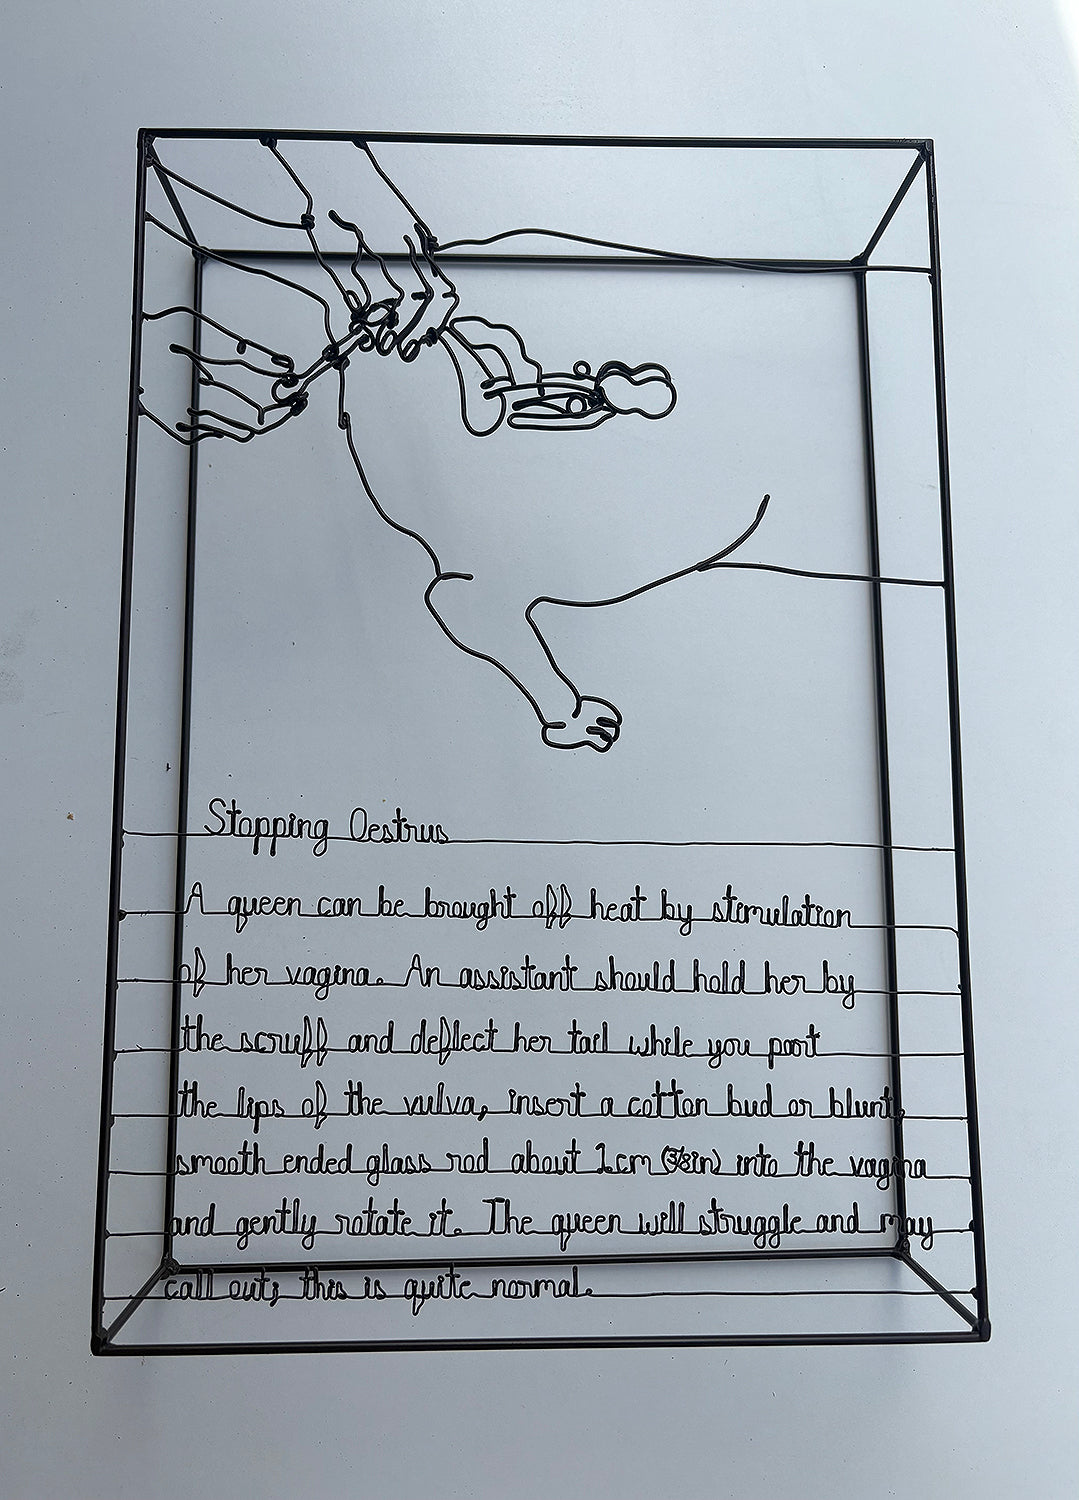 Stopping Oestrus
A queen can be brought off heat by stimulation
of her vagina. An assistant should hold her by
the scruff and deflect her tail while you part
the lips of the vulva, insert a cotton bud or blunt,
smooth ended glass rod about 1cm (3/8in) into the vagina
and gently rotate it. The queen will struggle and may
call out; this is quite normal.